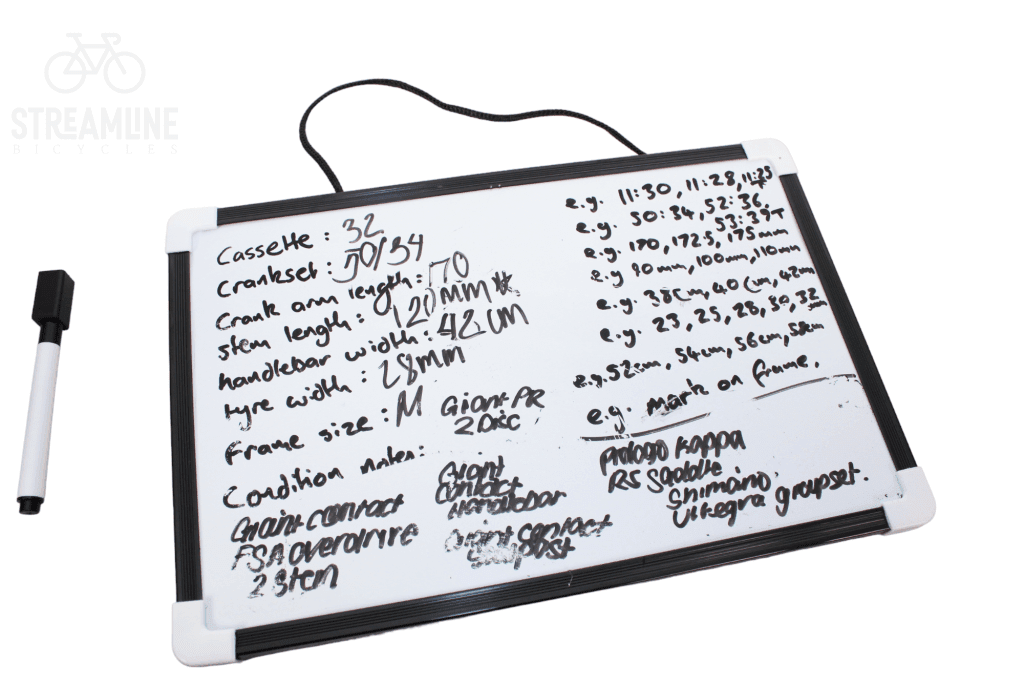 STREAMLINE
BICYCLES
Cassette : 32
Crankset : 50/34
Crank arm length : 170
stem length : 120mm
handlebar width : 42cm
tyre width : 28mm
Frame size : M
Giant
2 Disc
Condition notes:
e.g. 11:30, 11:28, 11:25
e.g. 50:34, 52:36,
53:39T
e.g. 170, 172.5, 175mm
e.g 90mm, 100mm, 110mm
e.g. 38cm, 40cm, 42cm
e.g. 23, 25, 28, 30, 32
e.g. 52cm, 54cm, 56cm, 58cm
e.g. mark on frame.
contact
FSA
2 Stem
Giant
contact
Handlebar
Giant
Prologo Kappa
RS Saddle
Shimano
groupset.